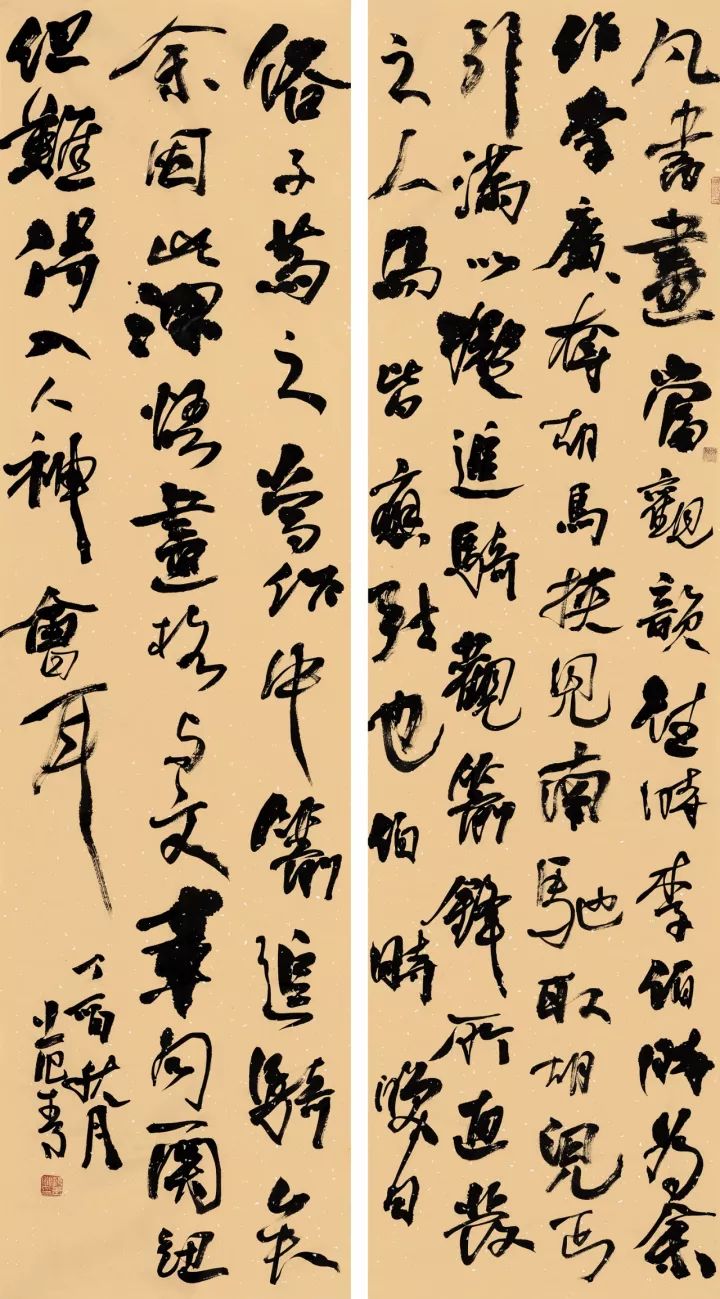 凡書畫當觀韻往時李伯時為余
作李廣奪胡馬挾兒南馳取胡兒弓
引滿以擬追騎觀箭鋒所直發
之人馬皆應弦也伯時笑曰
俗子為之當作中箭追騎矣
余因此深悟畫格与文章同關紐
但難得入人神會耳
丁酉秋月